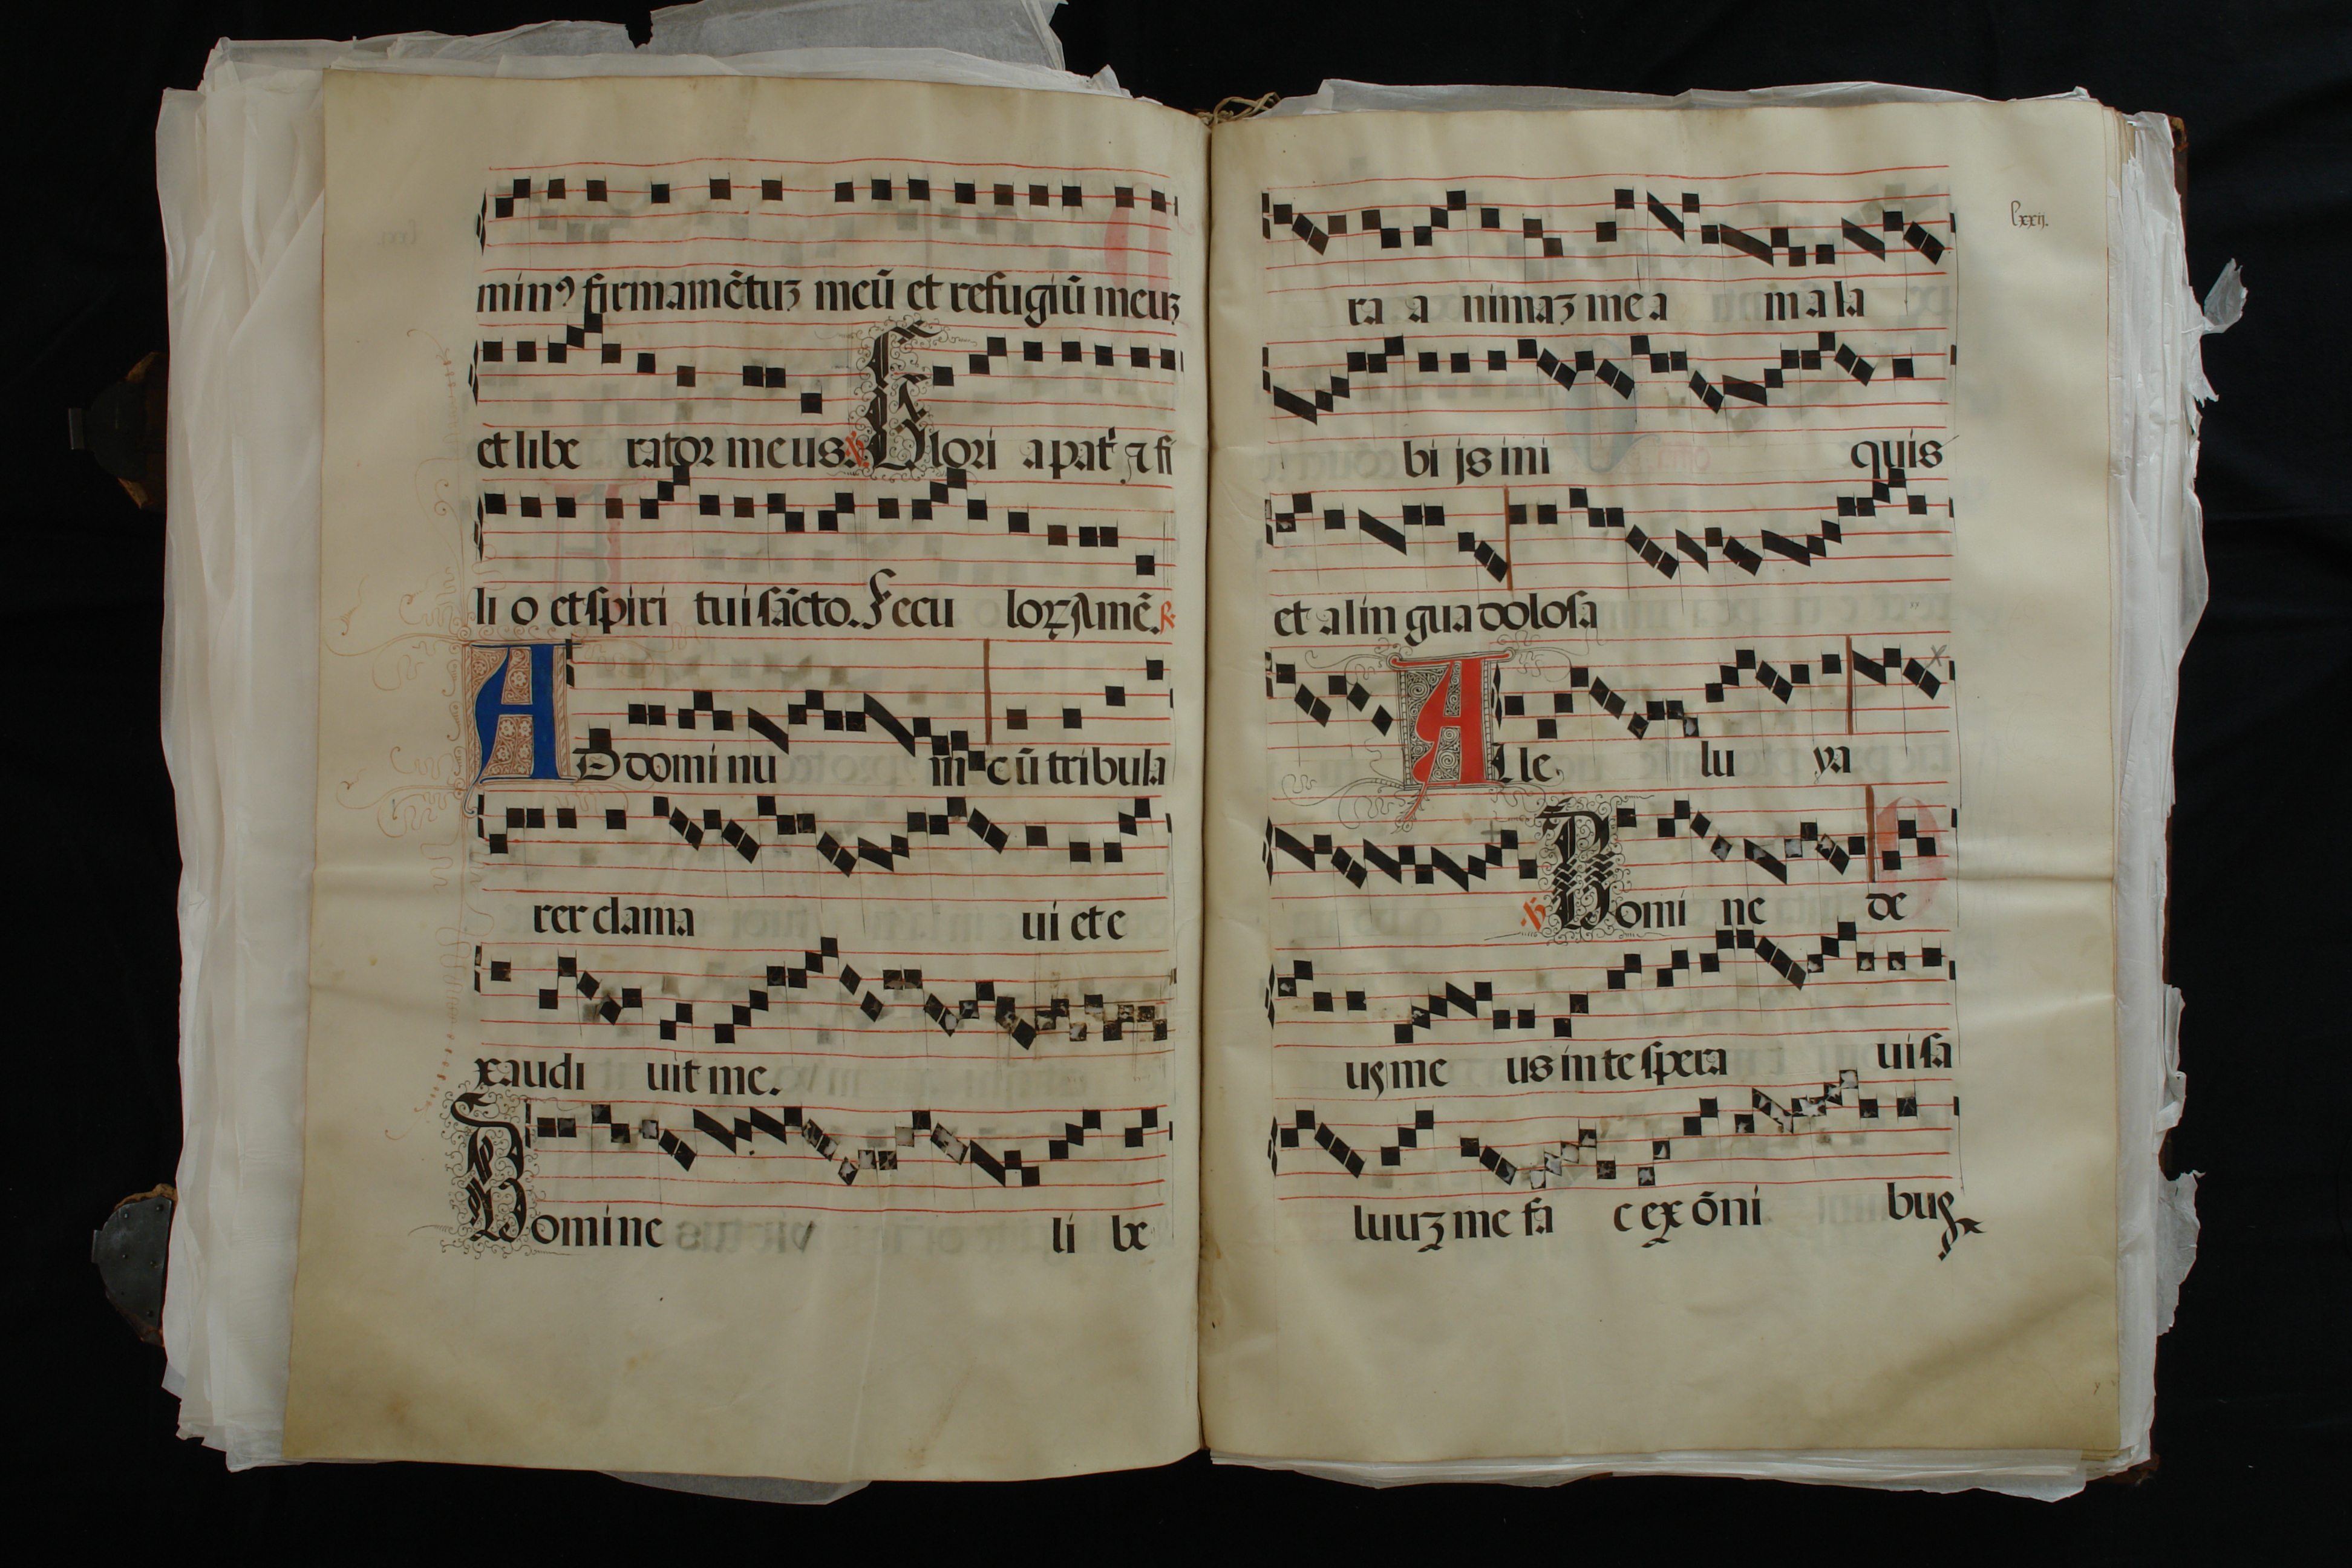 minꝰ firmamẽtuʒ meũ et refugiũ meuʒ
et libe rator meus. ℣. Glori a pat̃ ⁊ fi
li o et spiri tui sãcto. Secu loꝝ Amẽ. ℟.
AD domi nu m cũ tribula
rer clama ui et e
xaudi uit me.
Domine li be
lxxij.
ra a nimaʒ me a m a la
bi js ini quis
et a lin gua dolosa
Alle lu ya
℣. Domi ne de
us me us in te spera ui sa
luuʒ me fa c ex õni bus